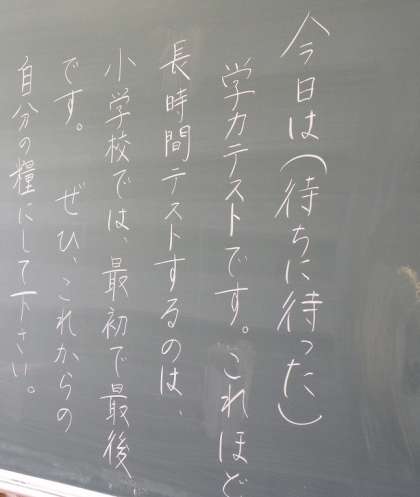 今日は(待ちに待った)
学力テストです。これほど
長時間テストするのは、
小学校では、最初で最後
です。ぜひ、これからの
自分の糧にして下さい。